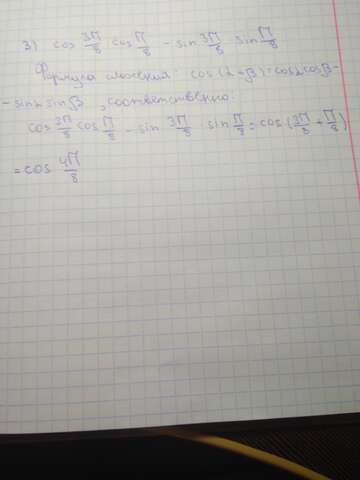 3) cos 3π/8 cos π/8 - sin 3π/8 sin π/8
Формула сложения: cos(α+β)=cosαcosβ-
-sinα sinβ, соответственно.
cos 3π/8 cos π/8 - sin 3π/8 sin π/8 = cos(3π/8 + π/8)
=cos 4π/8